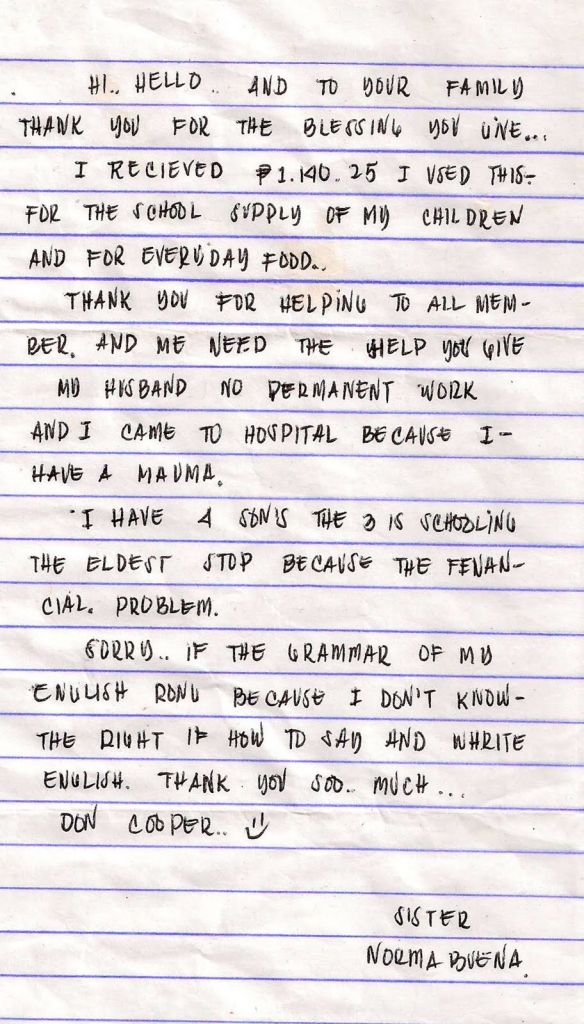 HI.. HELLO.. AND TO YOUR FAMILY
THANK YOU FOR THE BLESSING YOU GIVE...
I RECIEVED ₱1.140.25 I USED THIS-
FOR THE SCHOOL SUPPLY OF MY CHILDREN
AND FOR EVERYDAY FOOD..
THANK YOU FOR HELPING TO ALL MEM-
BER. AND ME NEED THE HELP YOU GIVE
MY HUSBAND NO PERMANENT WORK
AND I CAME TO HOSPITAL BECAUSE I-
HAVE A MAUMA.
I HAVE 4 SON'S THE 3 IS SCHOOLING
THE ELDEST STOP BECAUSE THE FENAN-
CIAL. PROBLEM.
SORRY.. IF THE GRAMMAR OF MY
ENGLISH RONG BECAUSE I DON'T KNOW-
THE RIGHT IF HOW TO SAY AND WHRITE
ENGLISH. THANK YOU SOO.. MUCH...
DON COOPER..
SISTER
NORMA BUENA.